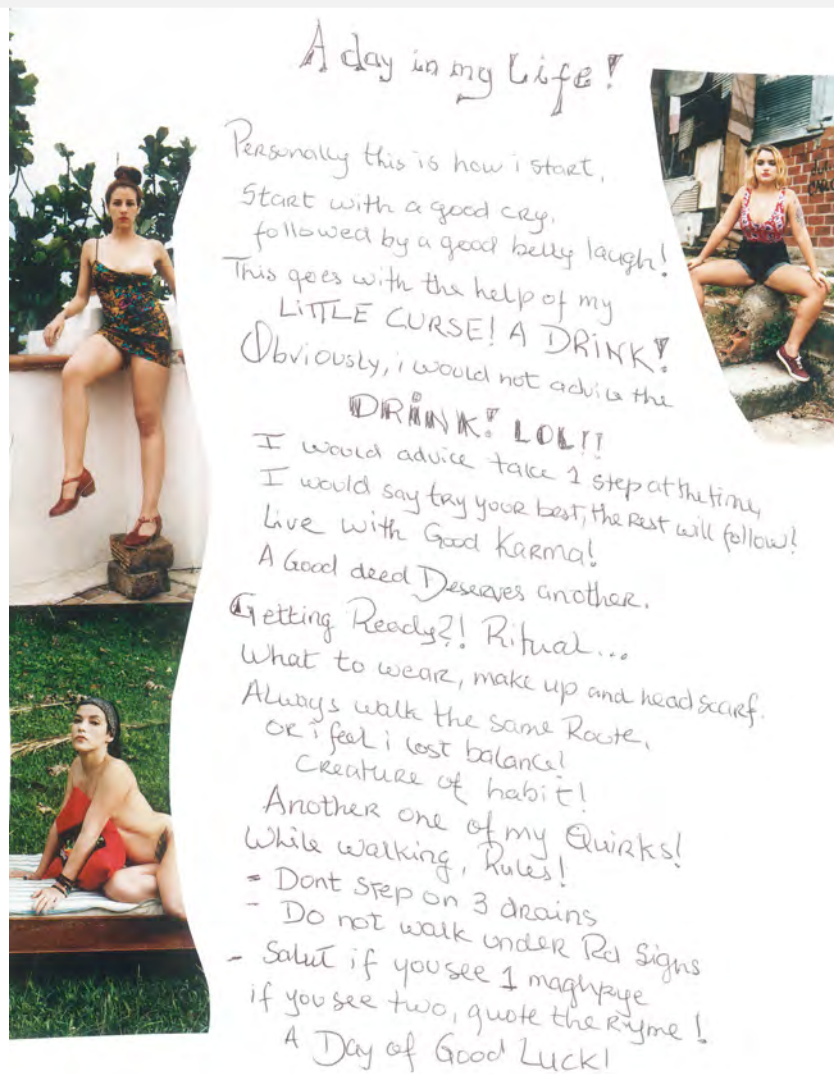 A day in my Life!
Personally this is how i start,
Start with a good cry,
followed by a good belly laugh!
This goes with the help of my
LITTLE CURSE! A DRINK!
Obviously, i would not advice the
DRINK! LOL!!
I would advice take 1 step at the time,
I would say try your best, the rest will follow!
Live with Good Karma!
A Good deed Deserves another.
Getting Ready?! Ritual...
What to wear, make up and head scarf.
Always walk the same Route,
or i feel i lost balance!
Creature of habit!
Another one of my Quirks!
While walking, Rules!
= Dont step on 3 drains
- Do not walk under Rd Signs
- Salut if you see 1 maghpye
if you see two, quote the Ryme!
A Day of Good Luck!